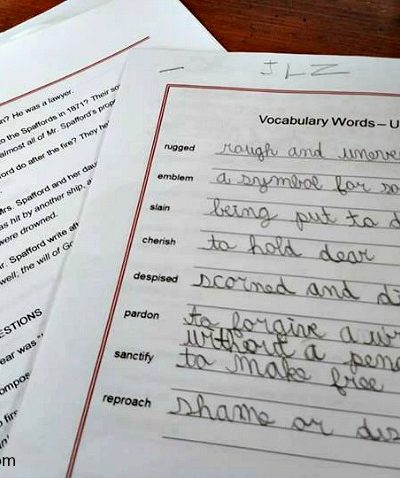 JLZ
Vocabulary Words – U
rugged rough and uneve
emblem a symbol for so
slain being put to d
cherish to hold dear
despised scorned and di
pardon to forgive a wr
without a pena
sanctify to make free
reproach shame or dis
? He was a lawyer.
o the Spaffords in 1871? Their so
almost all of Mr. Spafford's prop
ord do after the fire? They he
Mrs. Spafford and her dau
as hit by another ship, a
were drowned.
r. Spafford write aft
well; the will of Go
ESTIONS
ear was
ompos
o fire
om